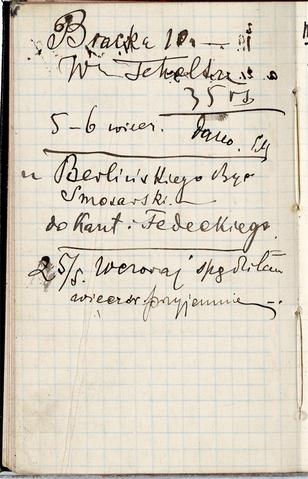 Bracka 10.
35 rs
5–6 wiecz.
u Berlińskiego był
Smosarski
do Kant. i Fedeckiego
25/5. Wczoraj spędziłem
wieczór przyjemnie